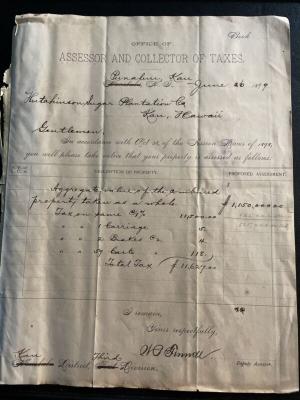 Book
OFFICE OF
ASSESSOR AND COLLECTOR OF TAXES.
Punaluu, Kau
H. I. June 26 1899
Hutchinson Sugar Plantation Co
Kau, Hawaii
Gentlemen,
In accordance with Act of the Session Laws of 1898,
you will please take notice that your property is assessed as follows:
DESCRIPTION OF PROPERTY. PROPOSED ASSESSMENT.
Aggregate value of the combined
property taken as a whole. $1,150,000.00
Tax on same @ 1% 11,500.00
" " 1 Carriage 5.
" " 2 Brakes @ 4.
" " 59 Carts " 118.
Total Tax $11,627.00
I remain,
Yours respectfully,
Deputy Assessor.
Kau District, Third Division.